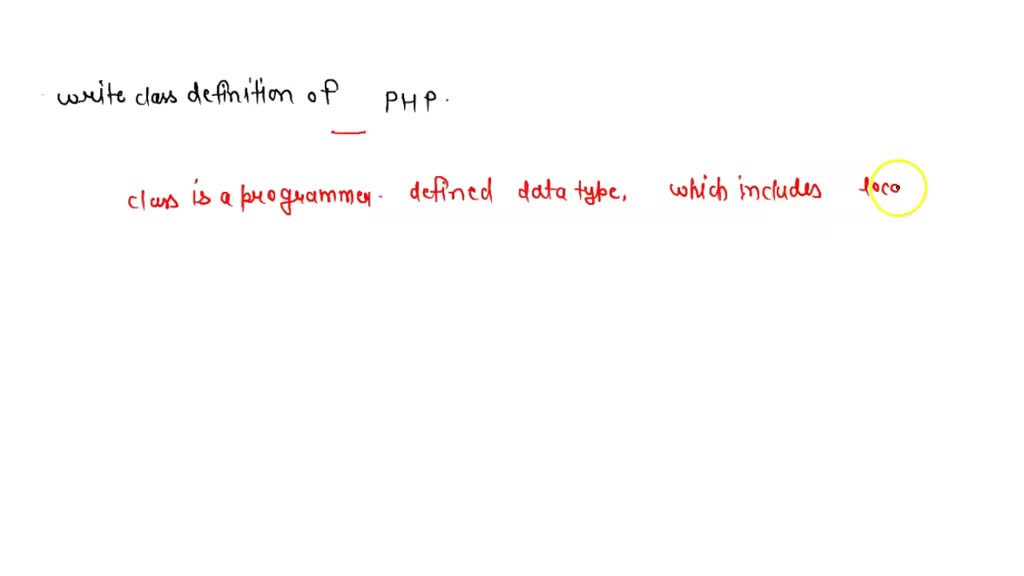 write class definition of PHP.
class is a programmer. defined data type, which includes loca